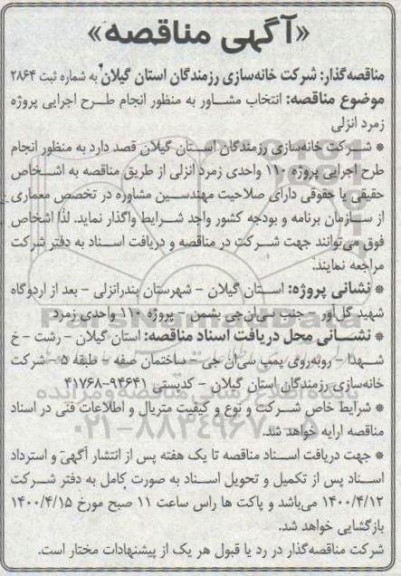 «آگهی مناقصه»
مناقصه‌گذار: شرکت خانه‌سازی رزمندگان استان گیلان به شماره ثبت ۲۸۶۴
موضوع مناقصه: انتخاب مشاور به منظور انجام طرح اجرایی پروژه
زمرد انزلی
* شرکت خانه‌سازی رزمندگان استان گیلان قصد دارد به منظور انجام
طرح اجرایی پروژه ۱۱۰ واحدی زمرد انزلی از طریق مناقصه به اشخاص
حقیقی یا حقوقی دارای صلاحیت مهندسین مشاوره در تخصص معماری
از سازمان برنامه و بودجه کشور واجد شرایط واگذار نماید. لذا اشخاص
فوق می‌توانند جهت شرکت در مناقصه و دریافت اسناد به دفتر شرکت
مراجعه نمایند.
* نشانی پروژه: استان گیلان - شهرستان بندرانزلی - بعد از اردوگاه
شهید گل‌آور - جنب سی‌ان‌جی یشمن - پروژه ۱۱۰ واحدی زمرد
* نشانی محل دریافت اسناد مناقصه: استان گیلان - رشت - خ
شهدا - روبه‌روی پمپ سی‌ان جی - ساختمان صفه - طبقه ۵ - شرکت
خانه‌سازی رزمندگان استان گیلان - کدپستی ۹۴۶۴۱-۴۱۷۶۸
* شرایط خاص شرکت و نوع و کیفیت متریال و اطلاعات فنی در اسناد
مناقصه ارایه خواهد شد.
* جهت دریافت اسناد مناقصه تا یک هفته پس از انتشار آگهی و استرداد
اسناد پس از تکمیل و تحویل اسناد به صورت کامل به دفتر شرکت
۱۴۰۰/۴/۱۲ می‌باشد و پاکت ها راس ساعت ۱۱ صبح مورخ ۱۴۰۰/۴/۱۵
بازگشایی خواهد شد.
شرکت مناقصه‌گذار در رد یا قبول هر یک از پیشنهادات مختار است.
۰۲۱-۸۸۳۴۹۶۷۰-۵